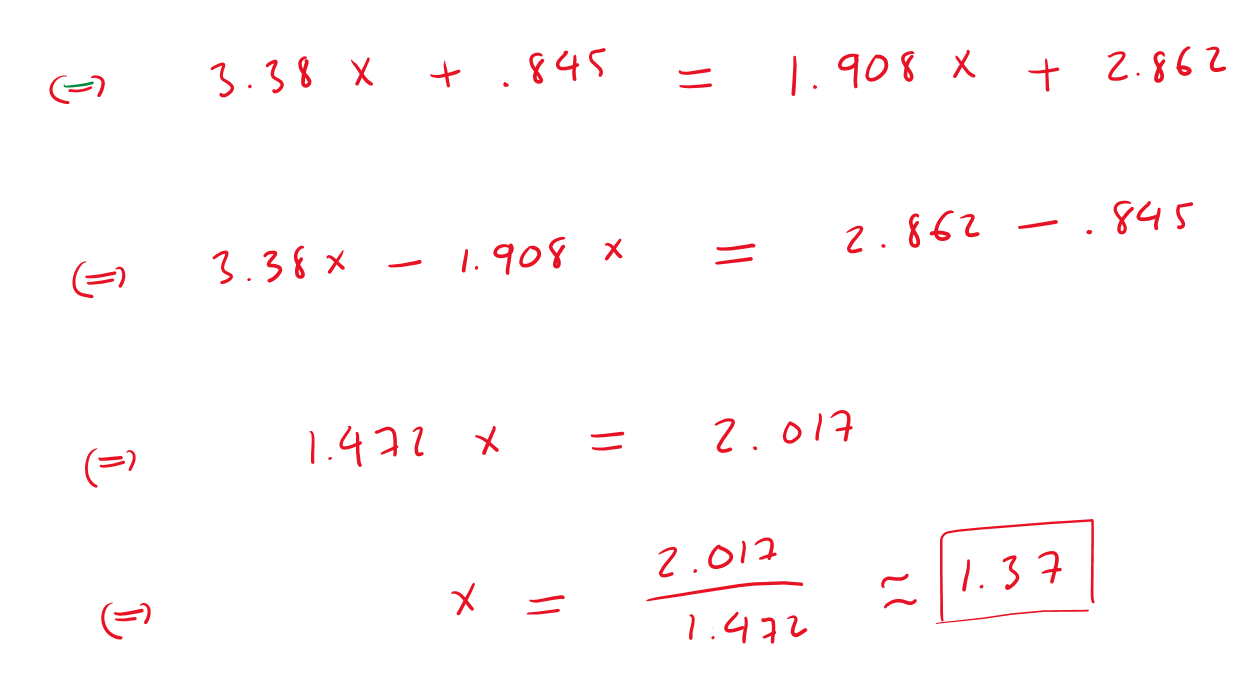 (=) 3.38 x + .845 = 1.908 x + 2.862
(=) 3.38 x - 1.908 x = 2.862 - .845
(=) 1.472 x = 2.017
(=) x = 2.017/1.472 ≈ 1.37